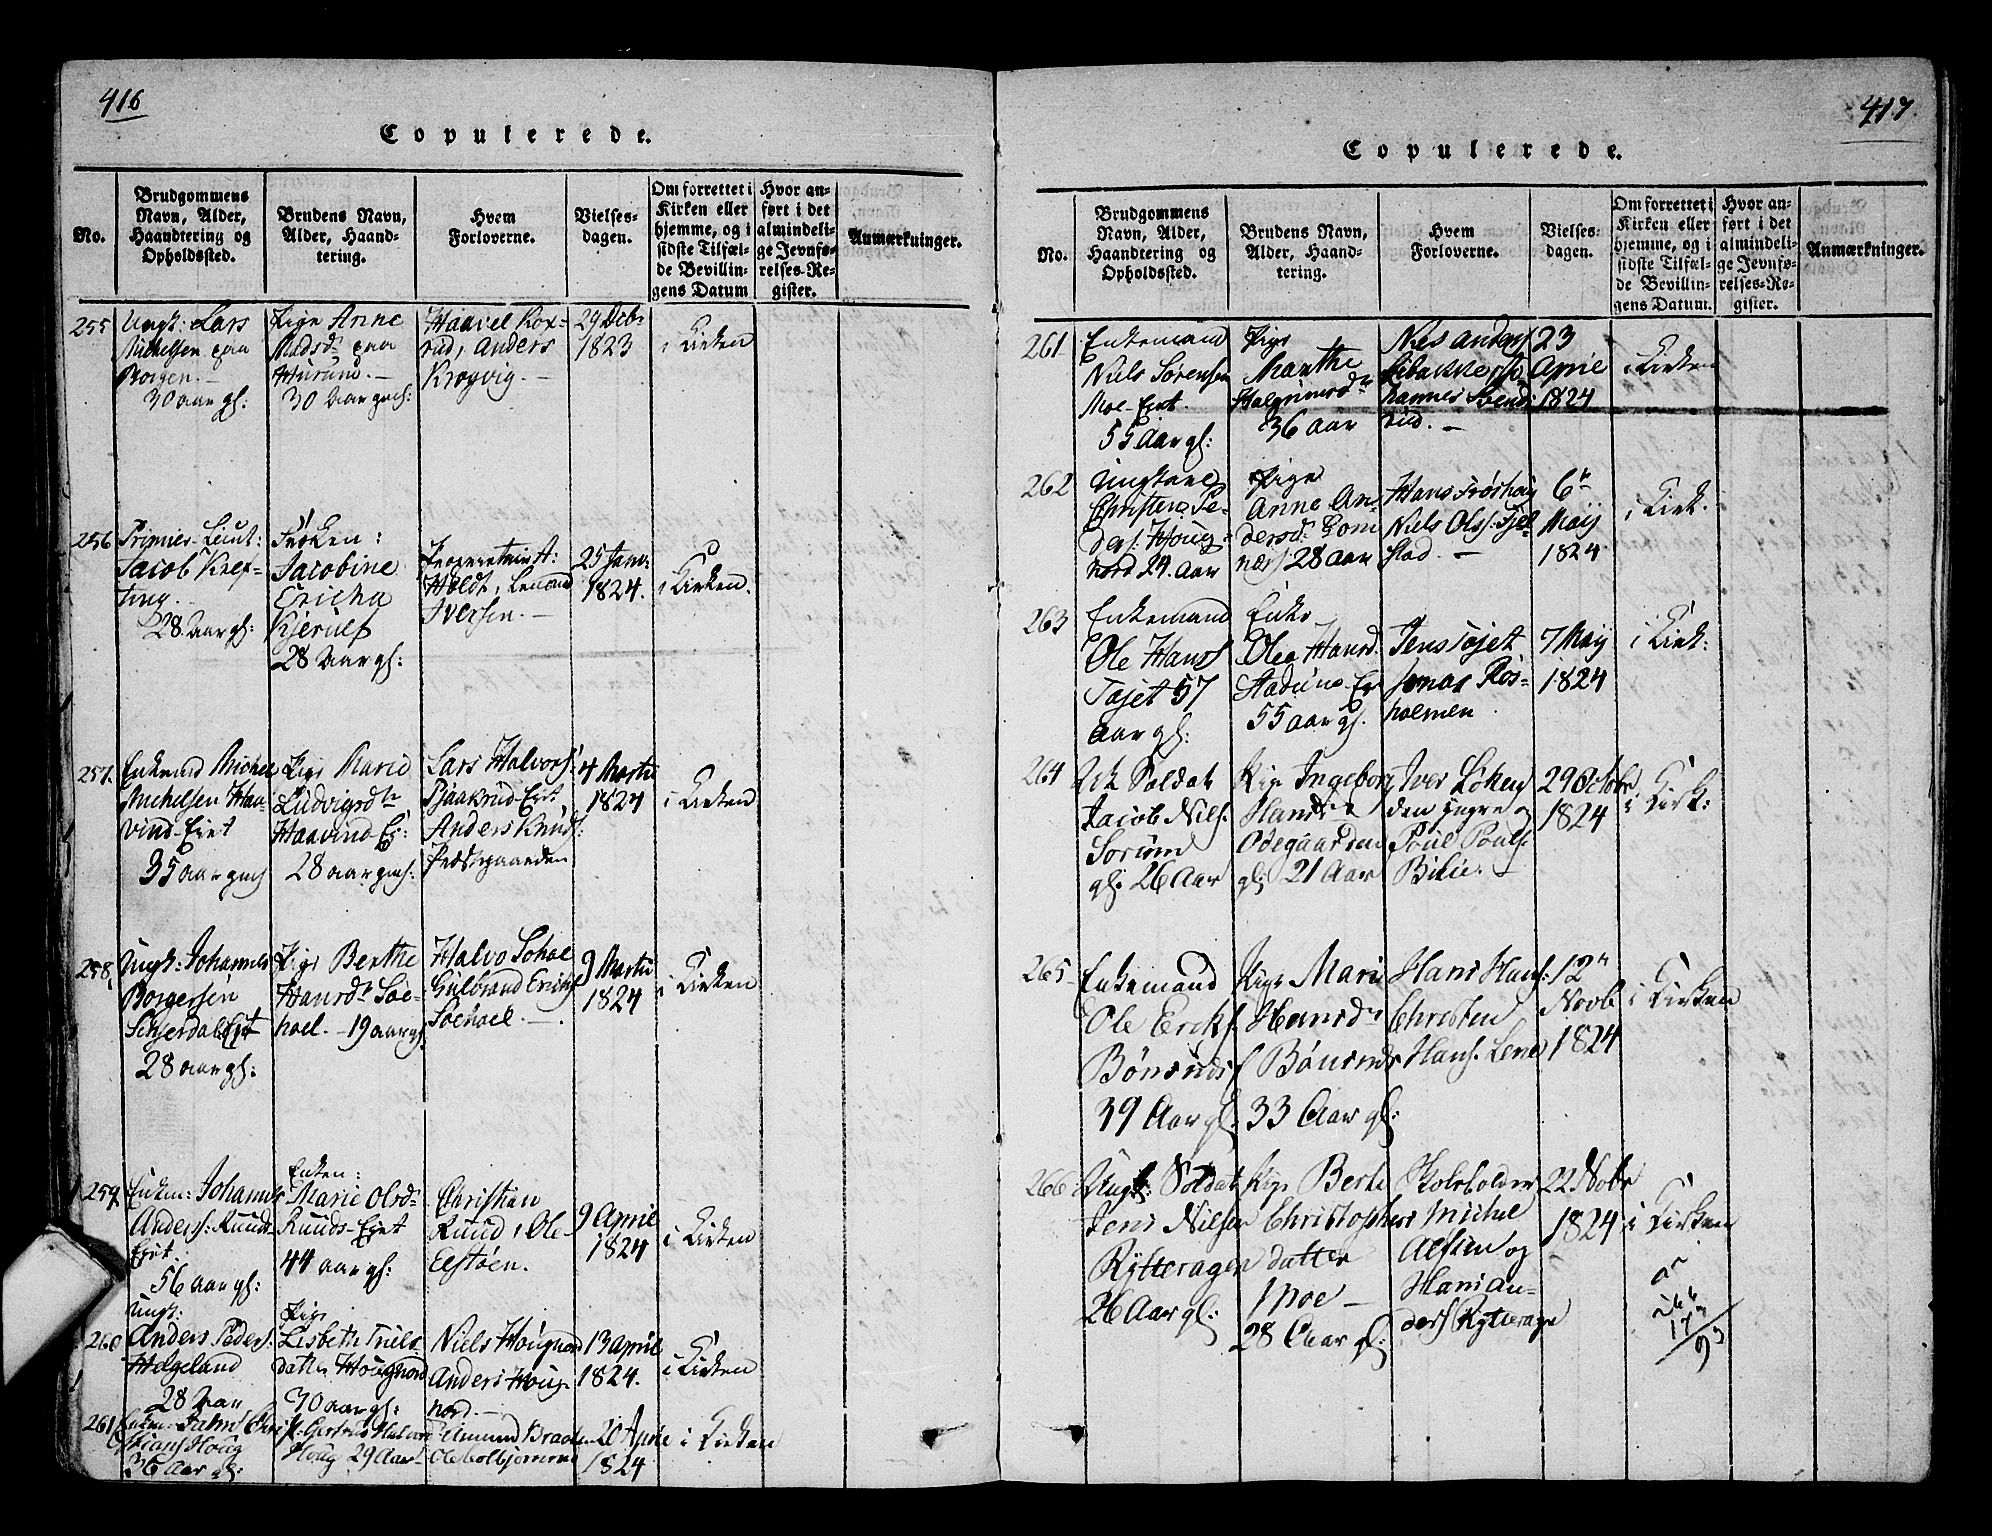 416
Copulerede.
No.
Brudgommens
Navn, Alder,
Haandtering og
Opholdssted.
Brudens Navn,
Alder, Haand-
tering.
Hvem
Forloverne.
Vielses-
dagen.
Om forrettet i
Kirken eller
hjemme, og i
sidste Tilfæl-
de Bevillin-
gens Datum
Hvor an-
ført i det
almindeli-
ge Jevnfø-
relses-Re-
gister.
Anmærkninger.
255
Ungk: Lars
Michelsen paa
Borgen. -
30 aar gl:
Pige Anne
Madsdr paa
30 Aar gml:
Haavel Rox-
rud, Anders
Kroyvig. -
29 Decbr
1823
i Kirken
256
Primier-Lieut:
Jacob Kref-
ting.
28 Aar gl:
Frøken:
Jacobine
Ericha
Kjerulf
28 Aar gl:
Proprietair A:
Holdt,
Iversen. -
25 Janr
1824.
i Kirken.
257.
Enkemd Michel
Michelsen Haa-
vind-Ejet
35 aar gml
Pige Marie
Ludvigsdtr
Haavind-Ej:
28 aar gml:
Lars Halvors:
Pjaakrud-Ejet
Anders Knuds:
Præstegaarden
4 Martii
1824
i Kirken
258,
Ungk: Johannes
Borgersen
Schjerdal Ejet
28 aar gl:
Pige Berthe
Hansdr Soe-
hoel. - 19 aar gl.
Halvo Sohoel
Gulbrand Erichs
Soehoel. -
9 Martii
1824
i Kirken
259.
Enkem: Johannes
Anders: Ruuds
Ejet.
56 aar gl:
Enken:
Marie Olsdr
Ruuds-Ejet
44 aar gl:
Christian
Ruud, Ole
Elstøen.
9 April
1824
i Kirken
260
Ungk:
Anders Peders:
Helgeland
28 Aar
Pige
Lisbeth Truls
datter Hougnord
30 aar gl:
Niels Hougnord
Anders Houg-
nord. -
13 April
1824.
i Kirken
261
Enkem: Chri
stians Houg
36 Aar gl:
P: Gertrud Halvors
Houg 29 Aar
Amund Braaten
Ole Kolbjornrud
20 Aprie
1824
i Kirken
417.
Copulerede.
No.
Brudgommens
Navn, Alder,
Haandtering og
Opholdssted.
Brudens Navn,
Alder, Haand-
tering.
Hvem
Forloverne.
Vielses-
dagen.
Om forrettet i
Kirken eller
hjemme, og i
sidste Tilfæl-
de Bevillin-
gens Datum.
Hvor an-
ført i det
almindeli-
ge Jevnfø-
relses-Re-
gister.
Anmærkninger.
261
Enkemand
Niels Sørensen
Moe-Ejet.
55 Aar gl:
Pige
Marthe
Halgrimsdr
36 aar
Niels Anders
Libakke, Jo-
hannes Svend-
rud. -
23
Aprie
1824
i Kirken
262
Ungkarl
Christen Pe-
ders: Houg-
nord 24. Aar
Pige
Anne An-
dersdr Gom
næs 28 aar
Hans Frøshoug
Niels Olss: Tjel
stad. -
6te
Maij
1824
i Kirk.
263
Enkemand
Ole Hans
Tajet 57
Aar gl:
Enke
Olea Hansd.
Stadum Ej
55 aar gl.
Jens Tøjet
Jonas Ros-
holmen
7 Maij
1824
i Kirk:
264
Uk Soldat
Jacob Niels.
Sorum
gl: 26 Aar
Pige Ingeborg
Hansdr
Odegaarden
gl: 21 Aar
Iver Løken
den yngre og
Poul Pouls:
Bilie. -
29 Octobr
1824
i Kirk:
265
Enkemand
Ole Ericks.
Bönsnds
39 Aar gl.
Pige Marie
Hansdr
Bönsnds
33 Aar gl:
Hans Hans:
Christen
Hans. Lene
12te
Novb
1824
i Kirken
266
Ungk: Soldat
Jens Nilsen
Rytteragen
26 Aar gl:
Pige Berte
Christophers
datter
Moe -
28 Aar gl:
Skoleholder
Michel
Alfsen og
Hans An-
ders Rytterager
22 Nobr
1824
i Kirken
266
173
93